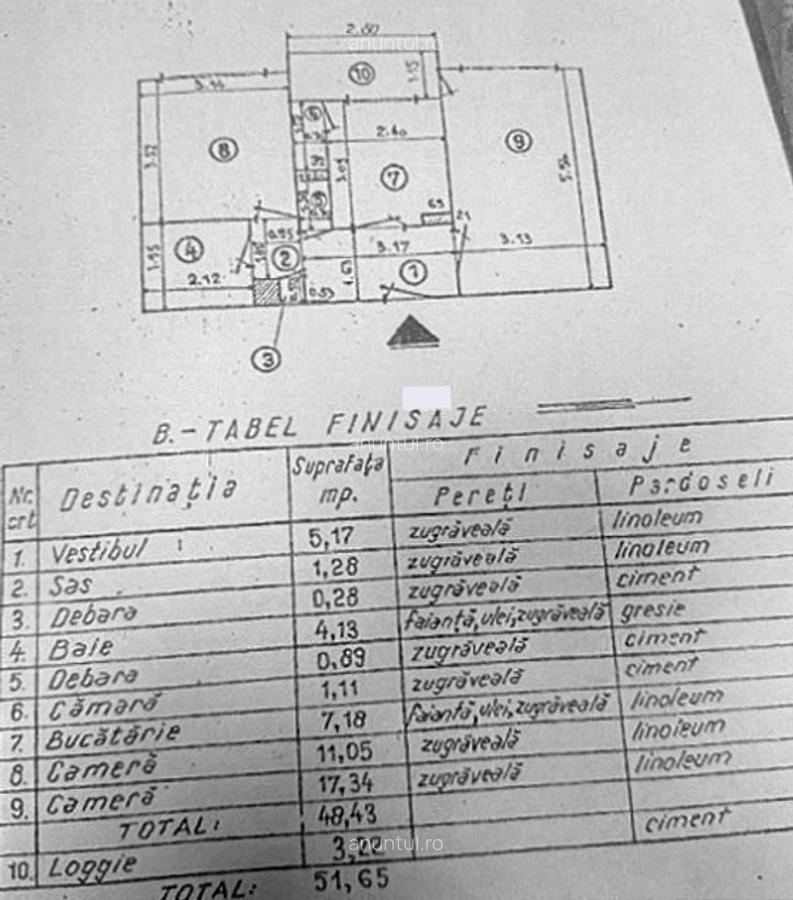 2.80
anuntul.ro
10
1.15
3.14
6
2.60
8
3.52
9
3.09
7
5.54
5
65
21
4
0.95
2
3.17
3.13
1.95
2.12
1
1.63
0.53
3
B.-TABEL FINISAJE
anuntul.ro
Nr. crt Destinația Suprafața mp. Finisaje
Pereți Pardoseli
1. Vestibul 5,17 zugrăveală linoleum
2. Sas 1,28 zugrăveală linoleum
3. Debara 0,28 zugrăveală ciment
4. Baie 4,13 faianță, ulei, zugrăveală gresie
5. Debara 0,89 zugrăveală ciment
6. Cămară 1,11 zugrăveală ciment
7. Bucătărie 7,18 faianță, ulei, zugrăveală linoleum
8. Cameră 11,05 zugrăveală linoleum
9. Cameră 17,34 zugrăveală linoleum
TOTAL: 48,43
10. Loggie 3,22 ciment
anuntul.ro
TOTAL: 51,65